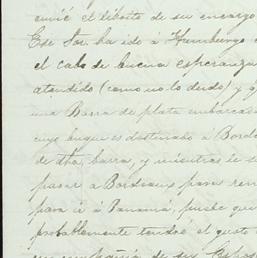 envié el librito de su encargo
Ese Sor. ha ido á Hamburgo
el cabo de buena esperanza
atendido (como no lo dudo) y q
una Barra de plata embarcad
cuyo buque es destinado á Bord
de dha. barra, y mientras se
pasar á Bordeaux para
para ir á Panamá, puede que
probablemente tendré el gusto
en compañia de su Espos